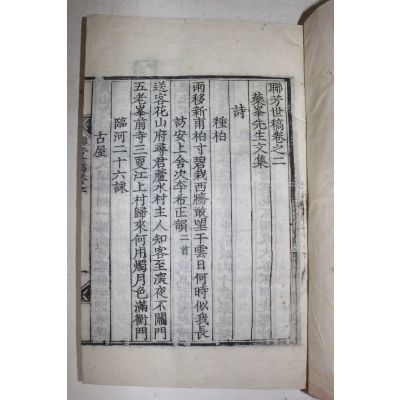 聯芳世稿卷之二
藥峯先生文集
詩
種柏
雨移新甫柏寸碧栽西牆敢望干雲日何時似我長
訪安上舍次李希正韻二首
送客花山府尋君蘆水村主人知客至深夜不關門
五老峯前寺三夏江上村歸來何用燭月色滿衡門
臨河二十六詠
古屋